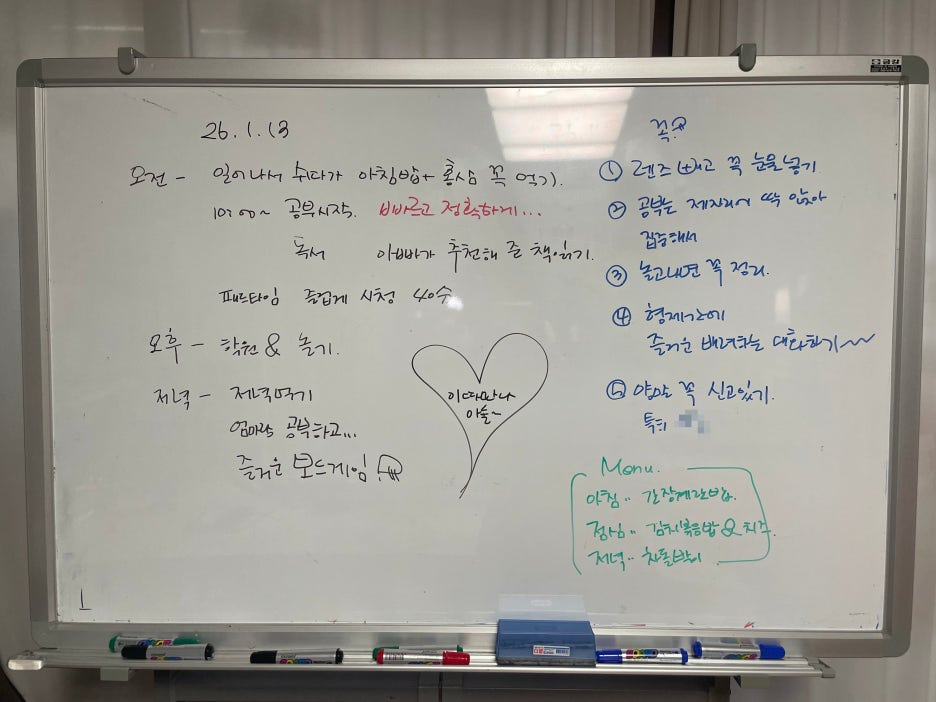 26.1.13
오전 - 일어나서 쉬다가 아침밥 + 홍삼 꼭 먹기.
10:00~ 공부시작. 빠르고 정확하게...
독서 아빠가 추천해 준 책읽기.
패드타임 즐겁게 시청 40分
오후 - 학원 & 놀기.
저녁 - 저녁먹기
엄마랑 공부하고...
즐거운 보드게임
이따만나
아들~
꼭!
① 렌즈 빼고 꼭 눈물 넣기
② 공부는 제자리에 딱 앉아
집중해서
③ 놀고나면 꼭 정리.
④ 형제간에
즐거운 배려하는 대화하기~
⑤ 양말 꼭 신고있기.
특히
Menu.
아침.. 간장계란밥.
점심.. 김치볶음밥 & 치즈.
저녁.. 차돌박이